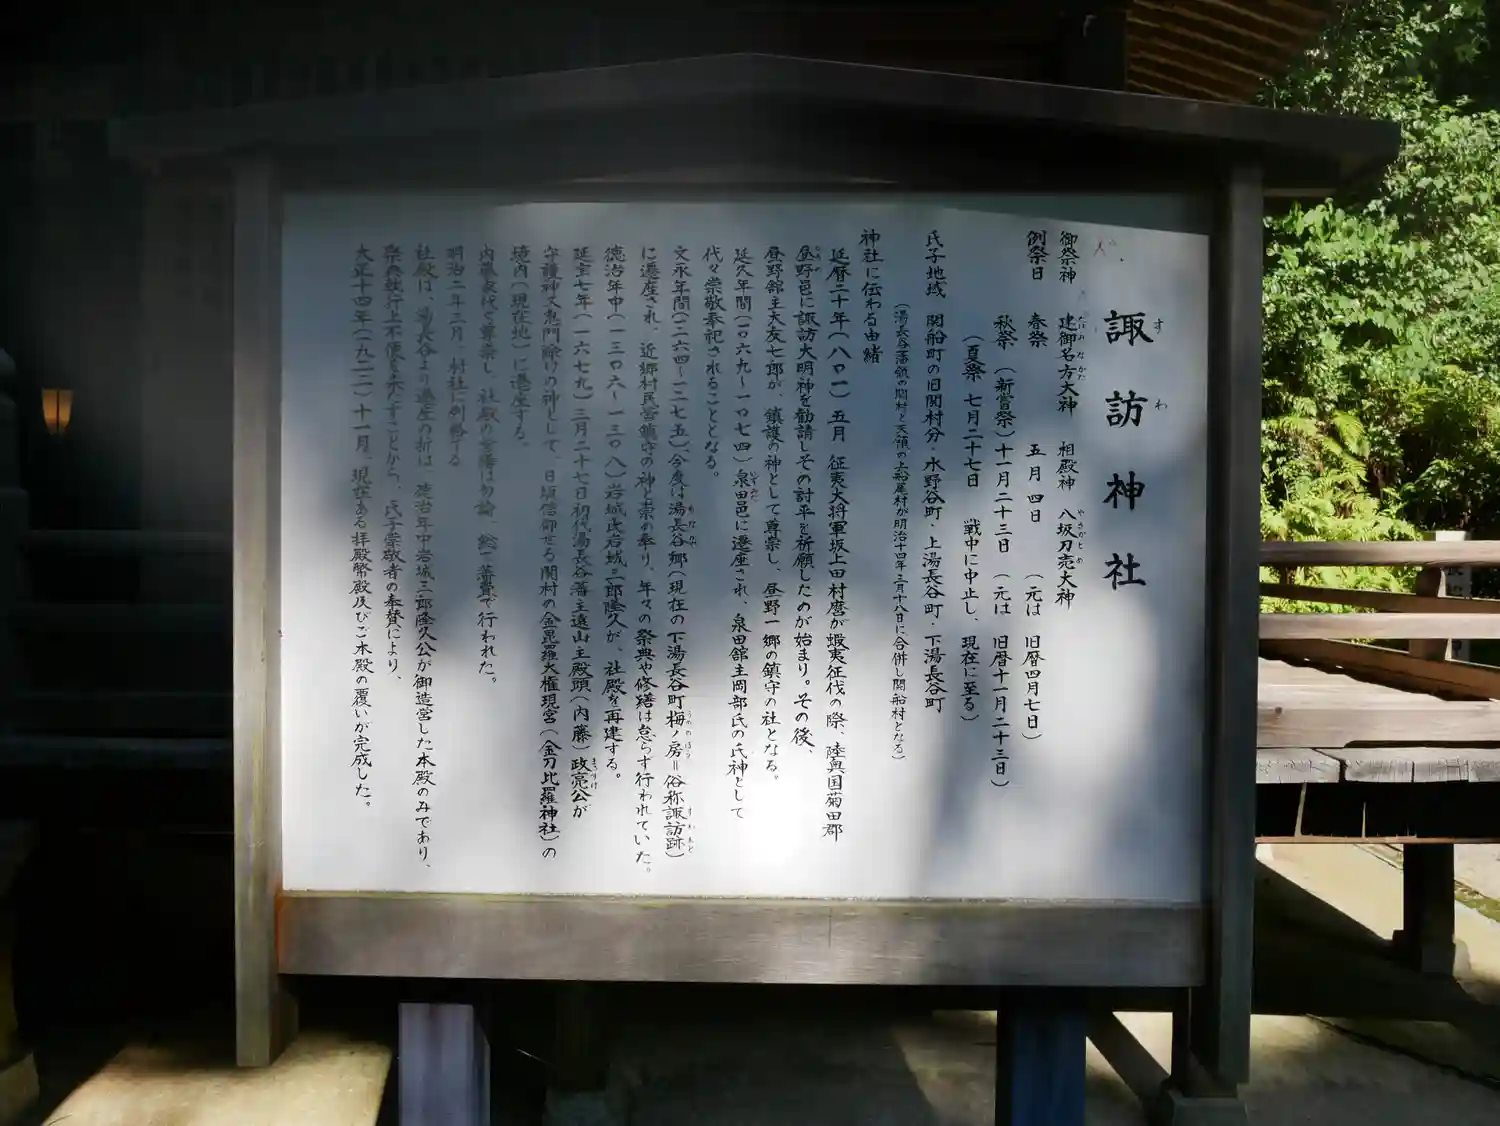 諏訪神社
御祭神 建御名方大神 相殿神 八坂刀売大神
例祭日 春祭 五月四日 (元は 旧暦四月七日)
秋祭 (新嘗祭)十一月二十三日 (元は 旧暦十一月二十三日)
(夏祭 七月二十七日 戦中に中止し、現在に至る)
氏子地域 関船町の旧関村分・水野谷町・上湯長谷町・下湯長谷町
(湯長谷藩領の関村と天領の上船尾村が明治十四年三月十八日に合併し関船村となる)
神社に伝わる由緒
延暦二十年(八〇一)五月 征夷大将軍坂上田村麿が蝦夷征伐の際、陸奥国菊田郡
昼野邑に諏訪大明神を勧請しその討平を祈願したのが始まり。その後、
昼野舘主大友七郎が、鎮護の神として尊崇し、昼野一郷の鎮守の社となる。
延久年間(一〇六九～一〇七四)泉田邑に遷座され、泉田舘主岡部氏の氏神として
代々崇敬奉祀されることとなる。
文永年間(一二六四～一二七五)、今度は湯長谷郷(現在の下湯長谷町梅ノ房=俗称諏訪跡)
に遷座され、近郷村民等鎮守の神と崇め奉り、年々の祭典や修繕は怠らず行われていた。
徳治年中(一三〇六～一三〇八)岩城氏岩城三郎隆久が、社殿を再建する。
延宝七年(一六七九)三月二十七日初代湯長谷藩主遠山主殿頭(内藤)政亮公が
守護神又鬼門除けの神として、日頃信仰せる関村の金毘羅大権現宮(金刀比羅神社)の
境内(現在地)に遷座する。
内藤家代々尊崇し、社殿の営繕は勿論、総て藩費で行われた。
明治二年三月、村社に列格する
社殿は、湯長谷より遷座の折は、徳治年中岩城三郎隆久公が御造営した本殿のみであり、
祭典執行上不便を来たすことから、氏子崇敬者の奉賛により、
大正十四年(一九二二)十一月。現在ある拝殿幣殿及びご本殿の覆いが完成した。